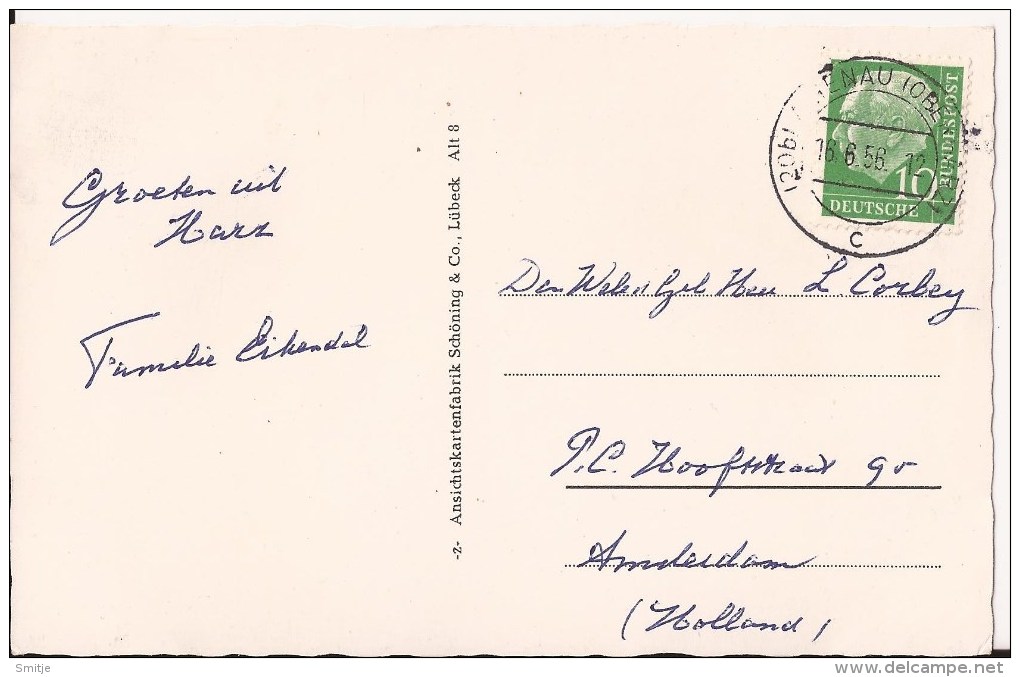 Groeten uit
Harz
Familie Eikendal
-z- Ansichtskartenfabrik Schöning & Co., Lübeck Alt 8
(20b) ENAU (OBE
16.6.56. 12
c
BUNDESPOST
10
DEUTSCHE
Den Weled Geb Heer L Corbey
P.C. Hooftstraat 95
Amsterdam
(Holland)
Smitje
www.delcampe.net